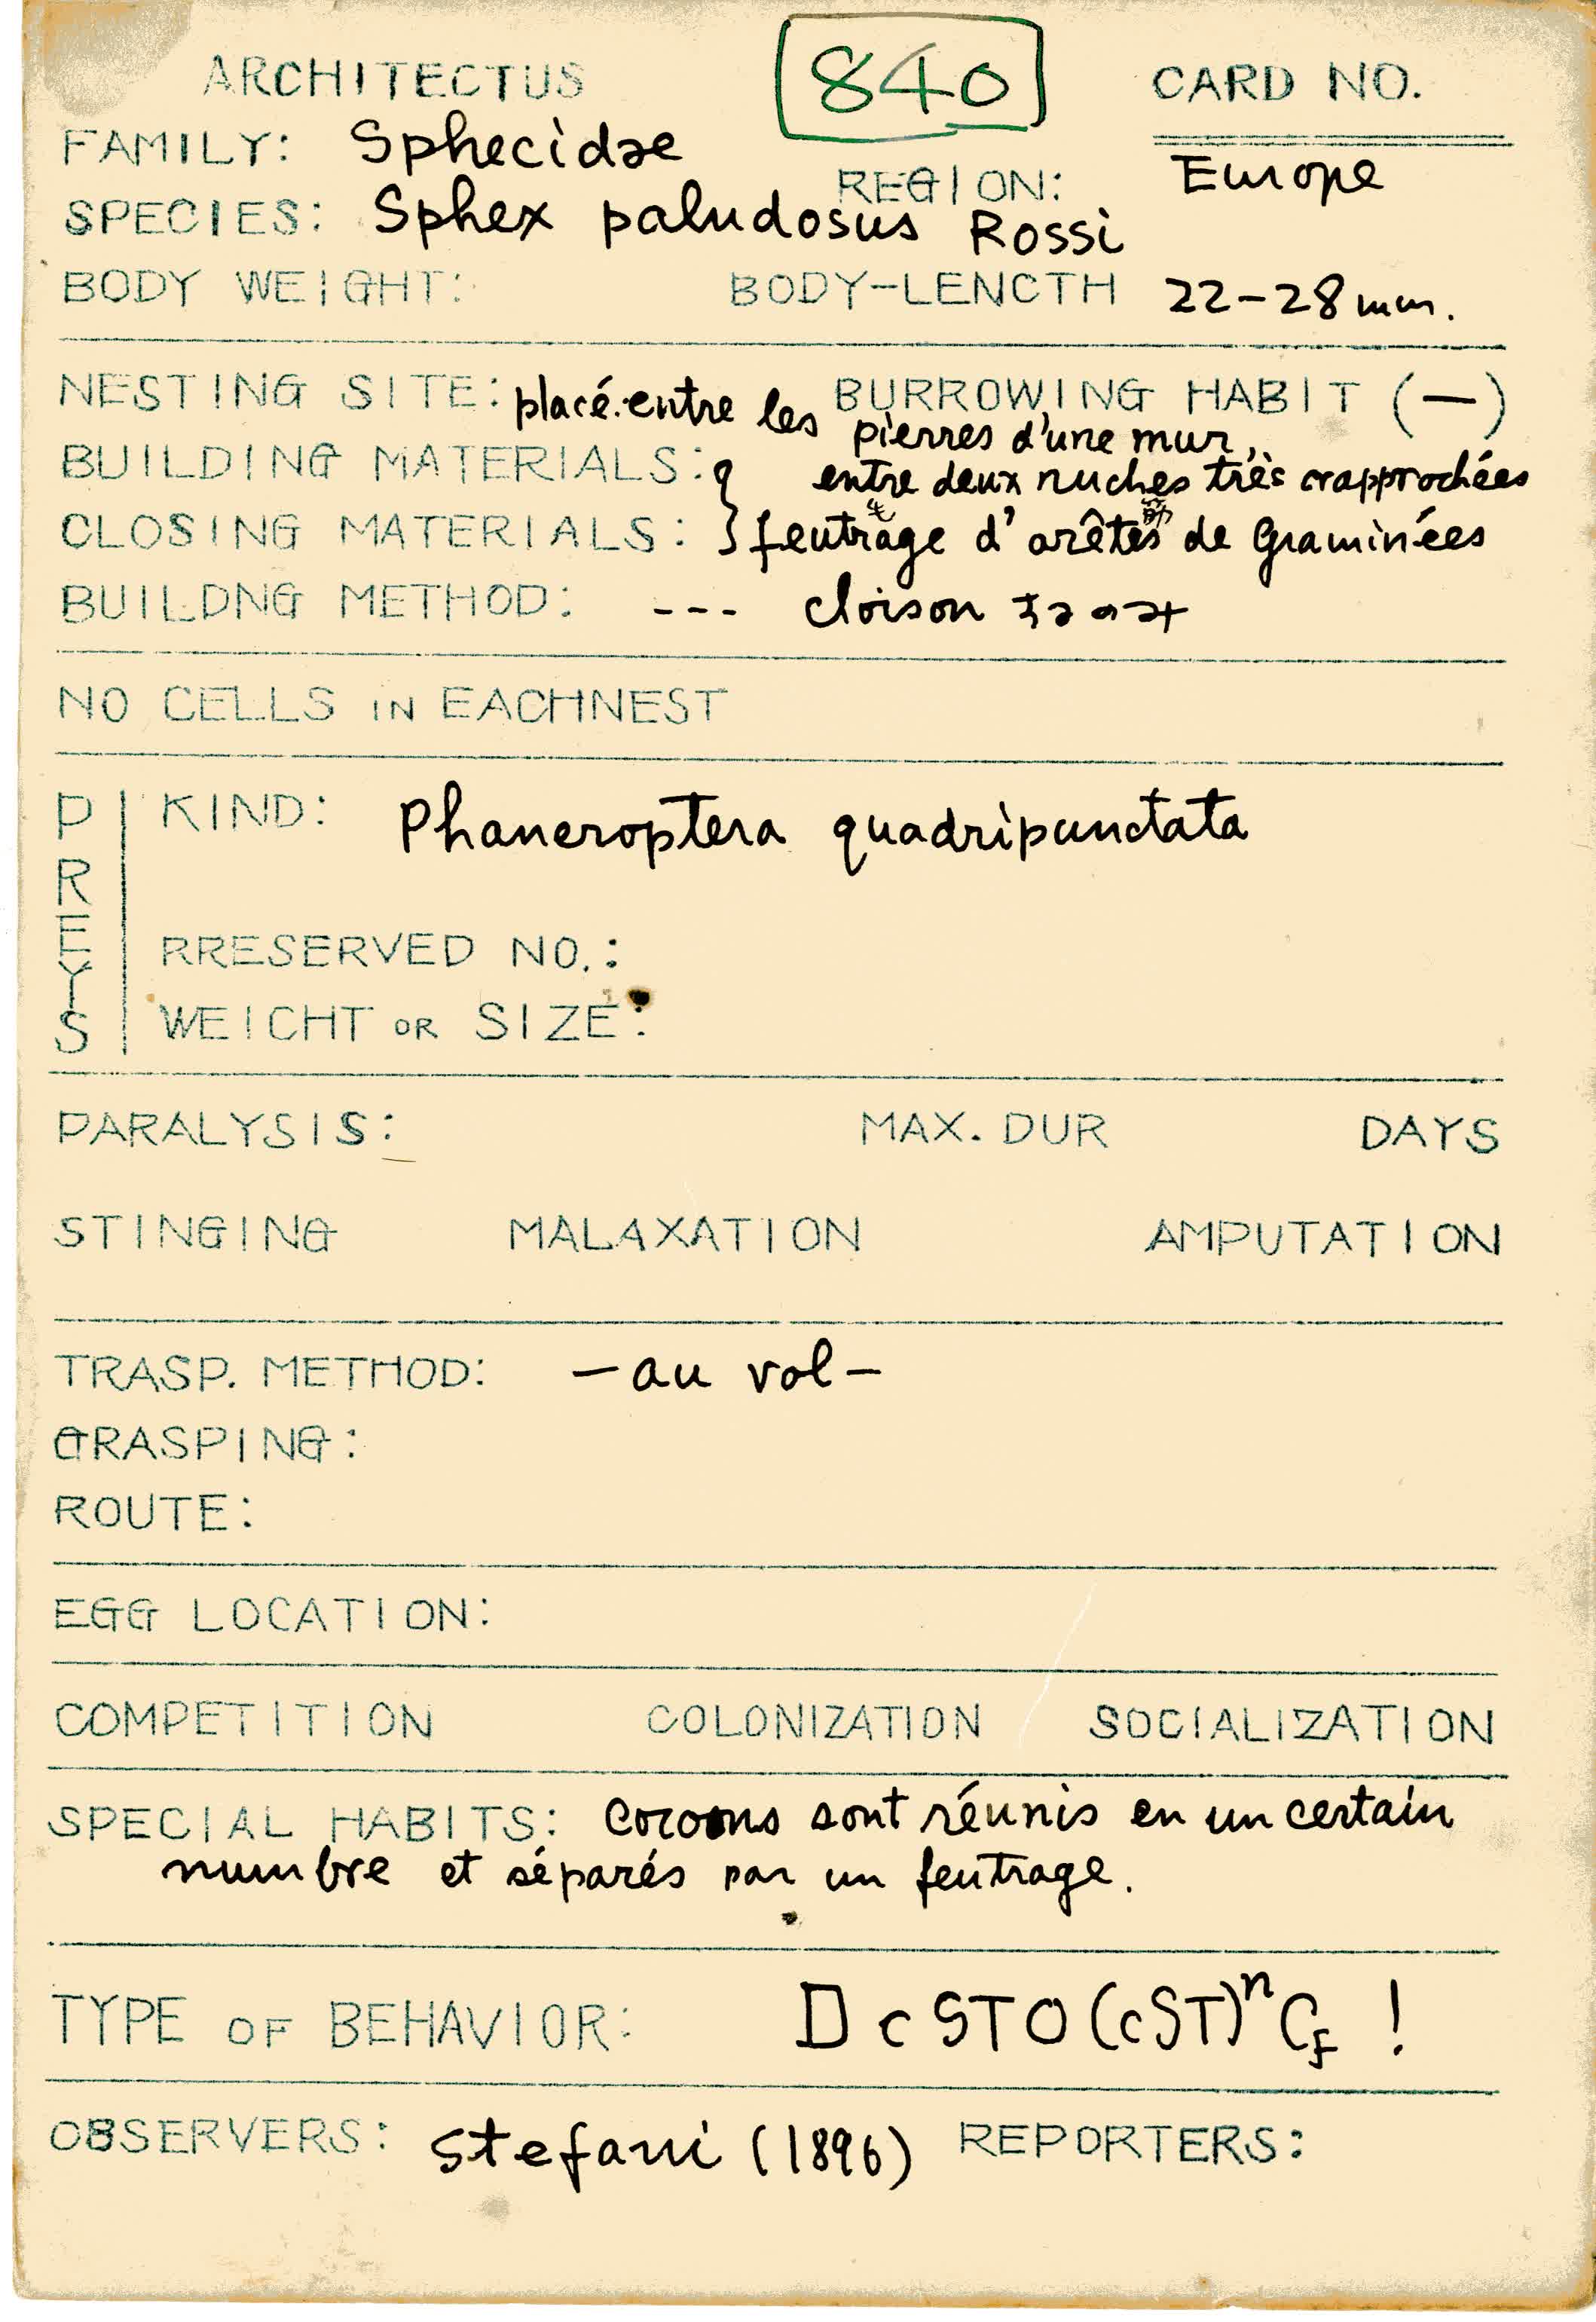 ARCHITECTUS 840 CARD NO.
FAMILY: Sphecidae
REGION: Europe
SPECIES: Sphex paludosus Rossi
BODY WEIGHT: BODY-LENCTH 22-28 mm.
NESTING SITE: placé entre les pierres d'une mur, BURROWING HABIT (—)
entre deux ruches très rapprochées
BUILDING MATERIALS:
CLOSING MATERIALS: } feutrage d'arêtes de Graminées
BUILDNG METHOD: --- cloison
NO CELLS IN EACHNEST
PREYS
KIND: Phaneroptera quadripunctata
RRESERVED NO.:
WEICHT OR SIZE:
PARALYSIS: MAX. DUR DAYS
STINGING MALAXATION AMPUTATION
TRASP. METHOD: —au vol—
GRASPING:
ROUTE:
EGG LOCATION:
COMPETITION COLONIZATION SOCIALIZATION
SPECIAL HABITS: cocons sont réunis en un certain
numbre et séparés par un feutrage.
TYPE OF BEHAVIOR: D c STO (cST)ⁿ C_f !
OBSERVERS: Stefani (1896) REPORTERS: